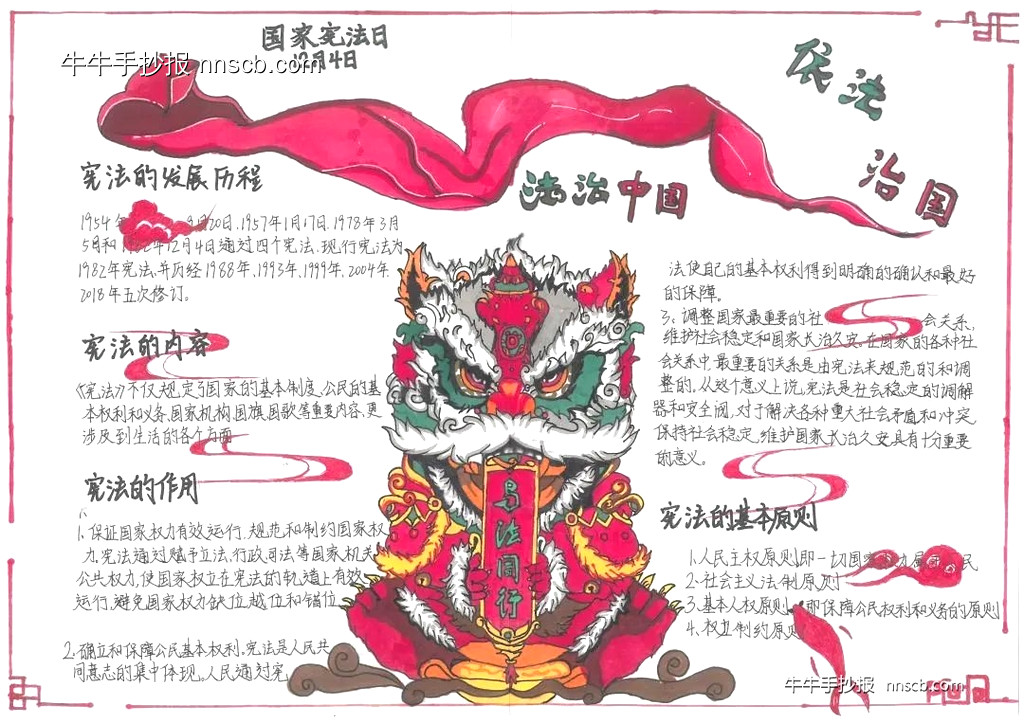 国家宪法日
12月4日
牛牛手抄报 nnscb.com
依法
治国
法治中国
宪法的发展历程
1954年 9月20日、1957年1月17日、1978年3月
5月和1982年12月4日通过四个宪法、现行宪法为
1982年宪法、并历经1988年、1993年、1999年、2004年、
2018年五次修订。
宪法的内容
《宪法》不仅规定了国家的基本制度、公民的基
本权利和义务、国家机构、国旗、国歌等重要内容、更
涉及到生活的各个方面
宪法的作用
1、保证国家权力有效运行、规范和制约国家权
力、宪法通过赋予立法、行政、司法等国家机关
公共权力、使国家权立在宪法的轨道上有效
运行、避免国家权力缺位、越位和错位
2、确立和保障公民基本权利、宪法是人民共
同意志的集中体现。人民通过宪
与法同行
法使自己的基本权利得到明确的确认和最好
的保障。
3、调整国家最重要的社 会关系,
维护社会稳定和国家长治久安。在国家的各种社
会关系中、最重要的关系是由宪法来规范的和调
整的、从这个意义上说、宪法是社会稳定的调解
器和安全阀、对于解决各种重大社会矛盾和冲突
保持社会稳定、维护国家长治久安具有十分重要
的意义。
宪法的基本原则
1、人民主权原则、即一切国家权力属于人民
2、社会主义法制原则
3、基本人权原则、即保障公民权利和义务的原则
4、权立制约原则
牛牛手抄报 nnscb.com